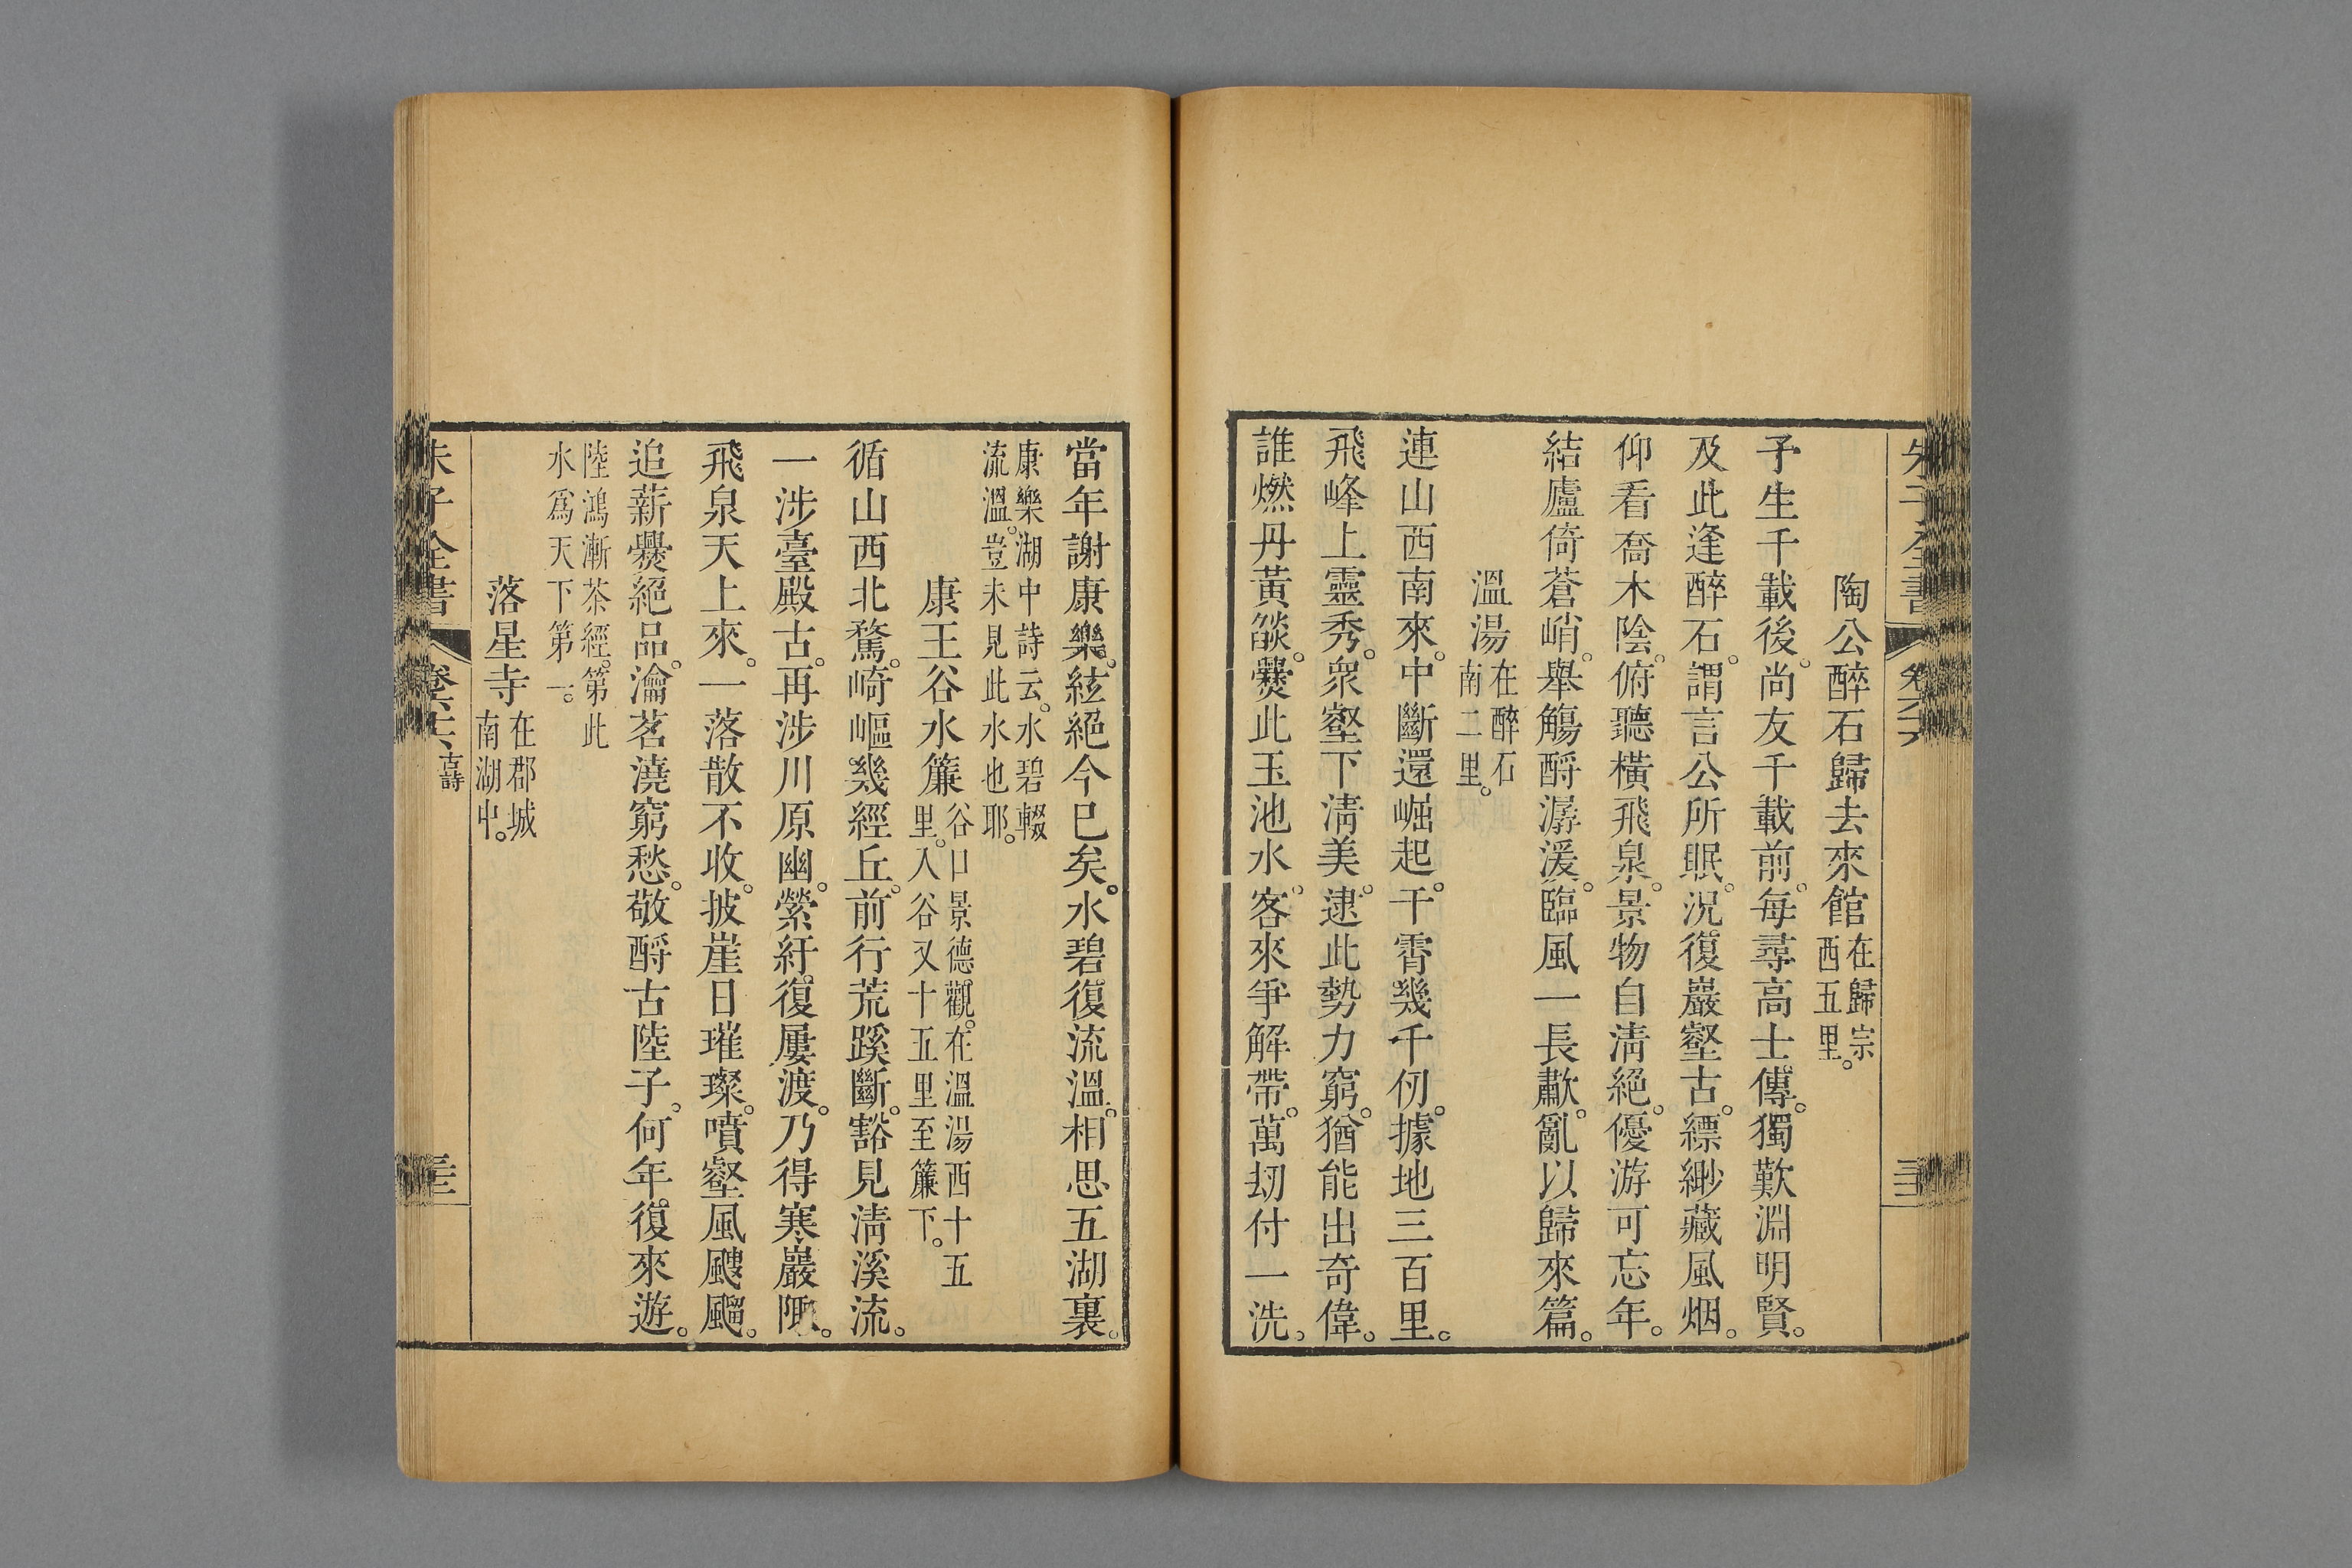 朱子全書 卷六十六
陶公醉石歸去來館 在歸宗西五里。
予生千載後。尚友千載前。每尋高士傳。獨歎淵明賢。
及此逢醉石。謂言公所眠。況復巖壑古。縹緲藏風烟。
仰看喬木陰。俯聽橫飛泉。景物自清絕。優游可忘年。
結廬倚蒼峭。舉觴酹潺湲。臨風一長歗。亂以歸來篇。
溫湯 在醉石南二里。
連山西南來。中斷還崛起。干霄幾千仞。據地三百里。
飛峰上靈秀。衆壑下清美。逮此勢力窮。猶能出奇偉。
誰燃丹黃燄。爨此玉池水。客來爭解帶。萬刼付一洗。
當年謝康樂。絃絕今已矣。水碧復流溫。相思五湖裏。
康樂湖中詩云。水碧輟流溫。豈未見此水也耶。
康王谷水簾 谷口景德觀。在溫湯西十五里。入谷又十五里至簾下。
循山西北騖。崎嶇幾經丘。前行荒蹊斷。豁見清溪流。
一涉臺殿古。再涉川原幽。縈紆復屢渡。乃得寒巖陬。
飛泉天上來。一落散不收。披崖日璀璨。噴壑風颼飀。
追薪爨絕品。瀹茗澆窮愁。敬酹古陸子。何年復來遊。
陸鴻漸茶經。第此水爲天下第一。
落星寺 在郡城南湖中。
朱子全書 古詩